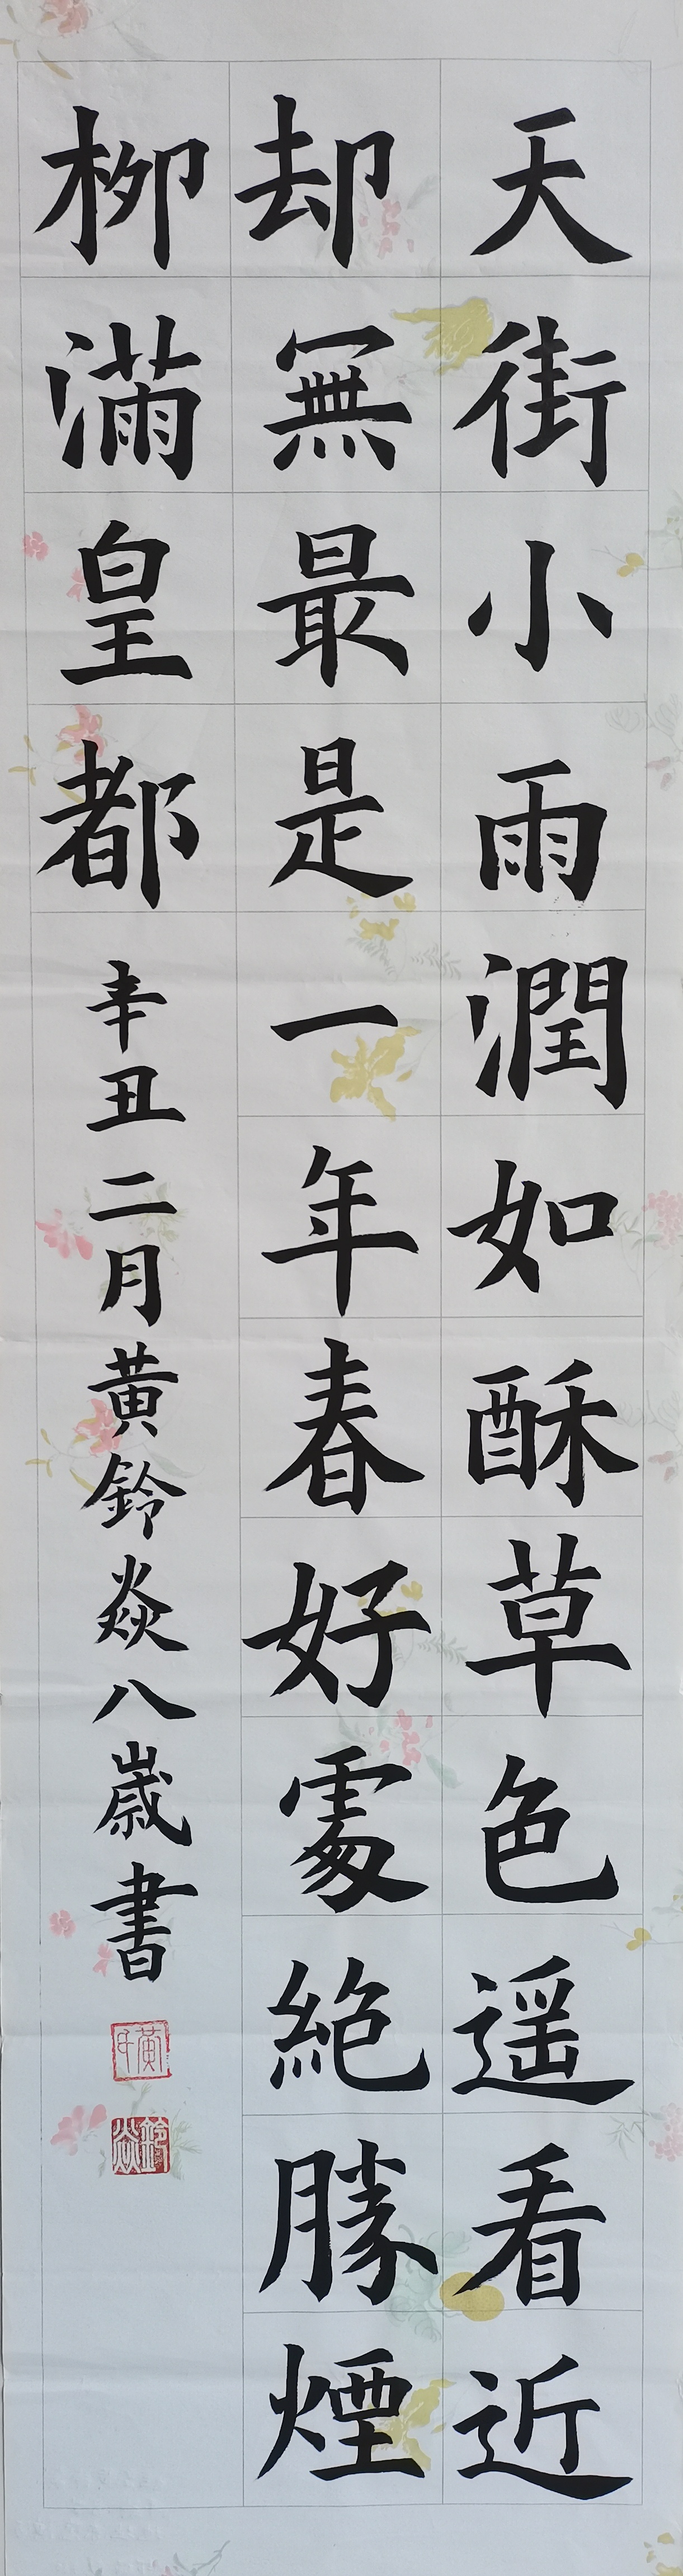 天街小雨潤如酥草色遥看近
却無最是一年春好處絶勝煙
柳滿皇都
辛丑二月黄鈴焱八歲書
黄氏
鈴焱